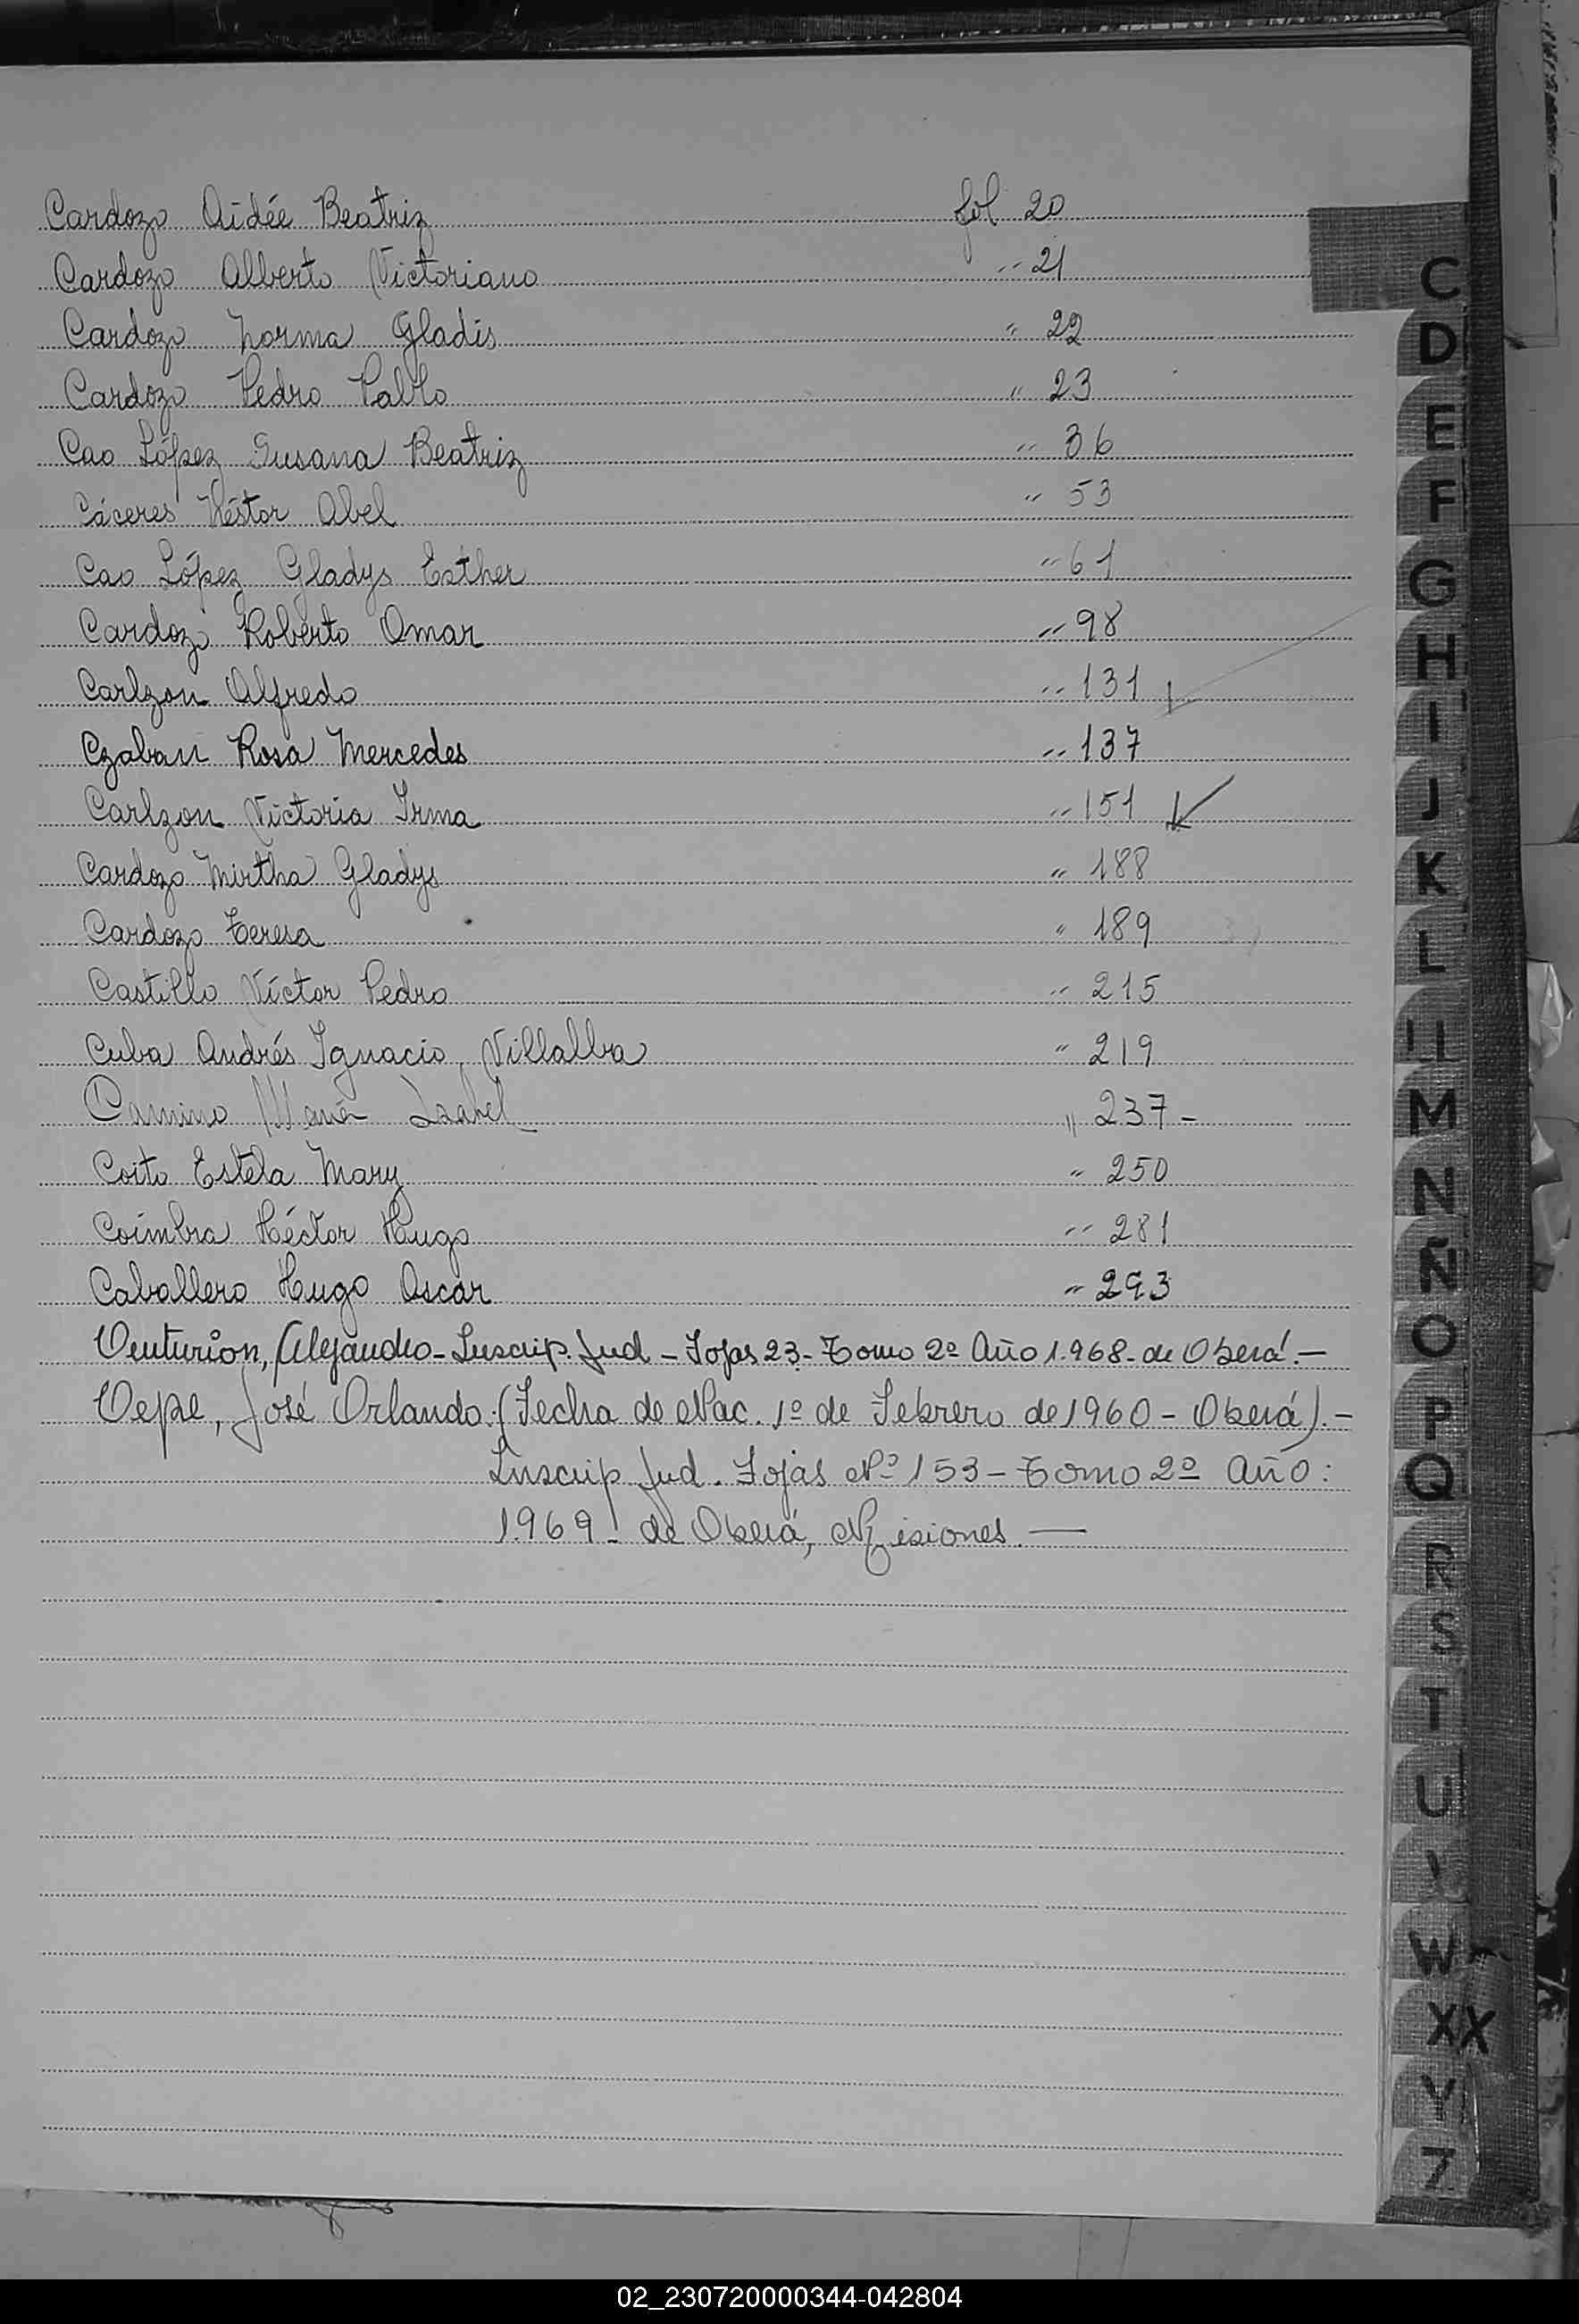 Cardozo Aidée Beatriz fol 20
Cardozo Alberto Victoriano " 21
Cardozo Norma Gladis " 22
Cardozo Pedro Pablo " 23
Cao López Susana Beatriz " 36
Cáceres Héstor Abel " 53
Cao López Gladys Esther " 61
Cardozo Roberto Omar " 98
Carlzon Alfredo " 131
Czaban Rosa Mercedes " 137
Carlzon Victoria Irma " 151
Cardozo Mirtha Gladys " 188
Cardozo Teresa " 189
Castillo Víctor Pedro " 215
Cuba Andrés Ignacio, Villalba " 219
Camino María Isabel " 237 -
Coito Estela Mary " 250
Coímbra Héctor Hugo " 281
Caballero Hugo Oscar " 293
Centurión, Alejandro - Inscrip. Jud - Fojas 23 - Tomo 2º Año 1.968 - de Oberá. -
Cepe, José Orlando: (Fecha de Nac. 1º de Febrero de 1960 - Oberá). -
Inscrip Jud. Fojas Nº 153 - Tomo 2º Año:
1.969 - de Oberá, Misiones. —
C
D
E
F
G
H
I
J
K
L
LL
M
N
Ñ
O
P
Q
R
S
T
U
W
X X
Y
Z
02_230720000344-042804